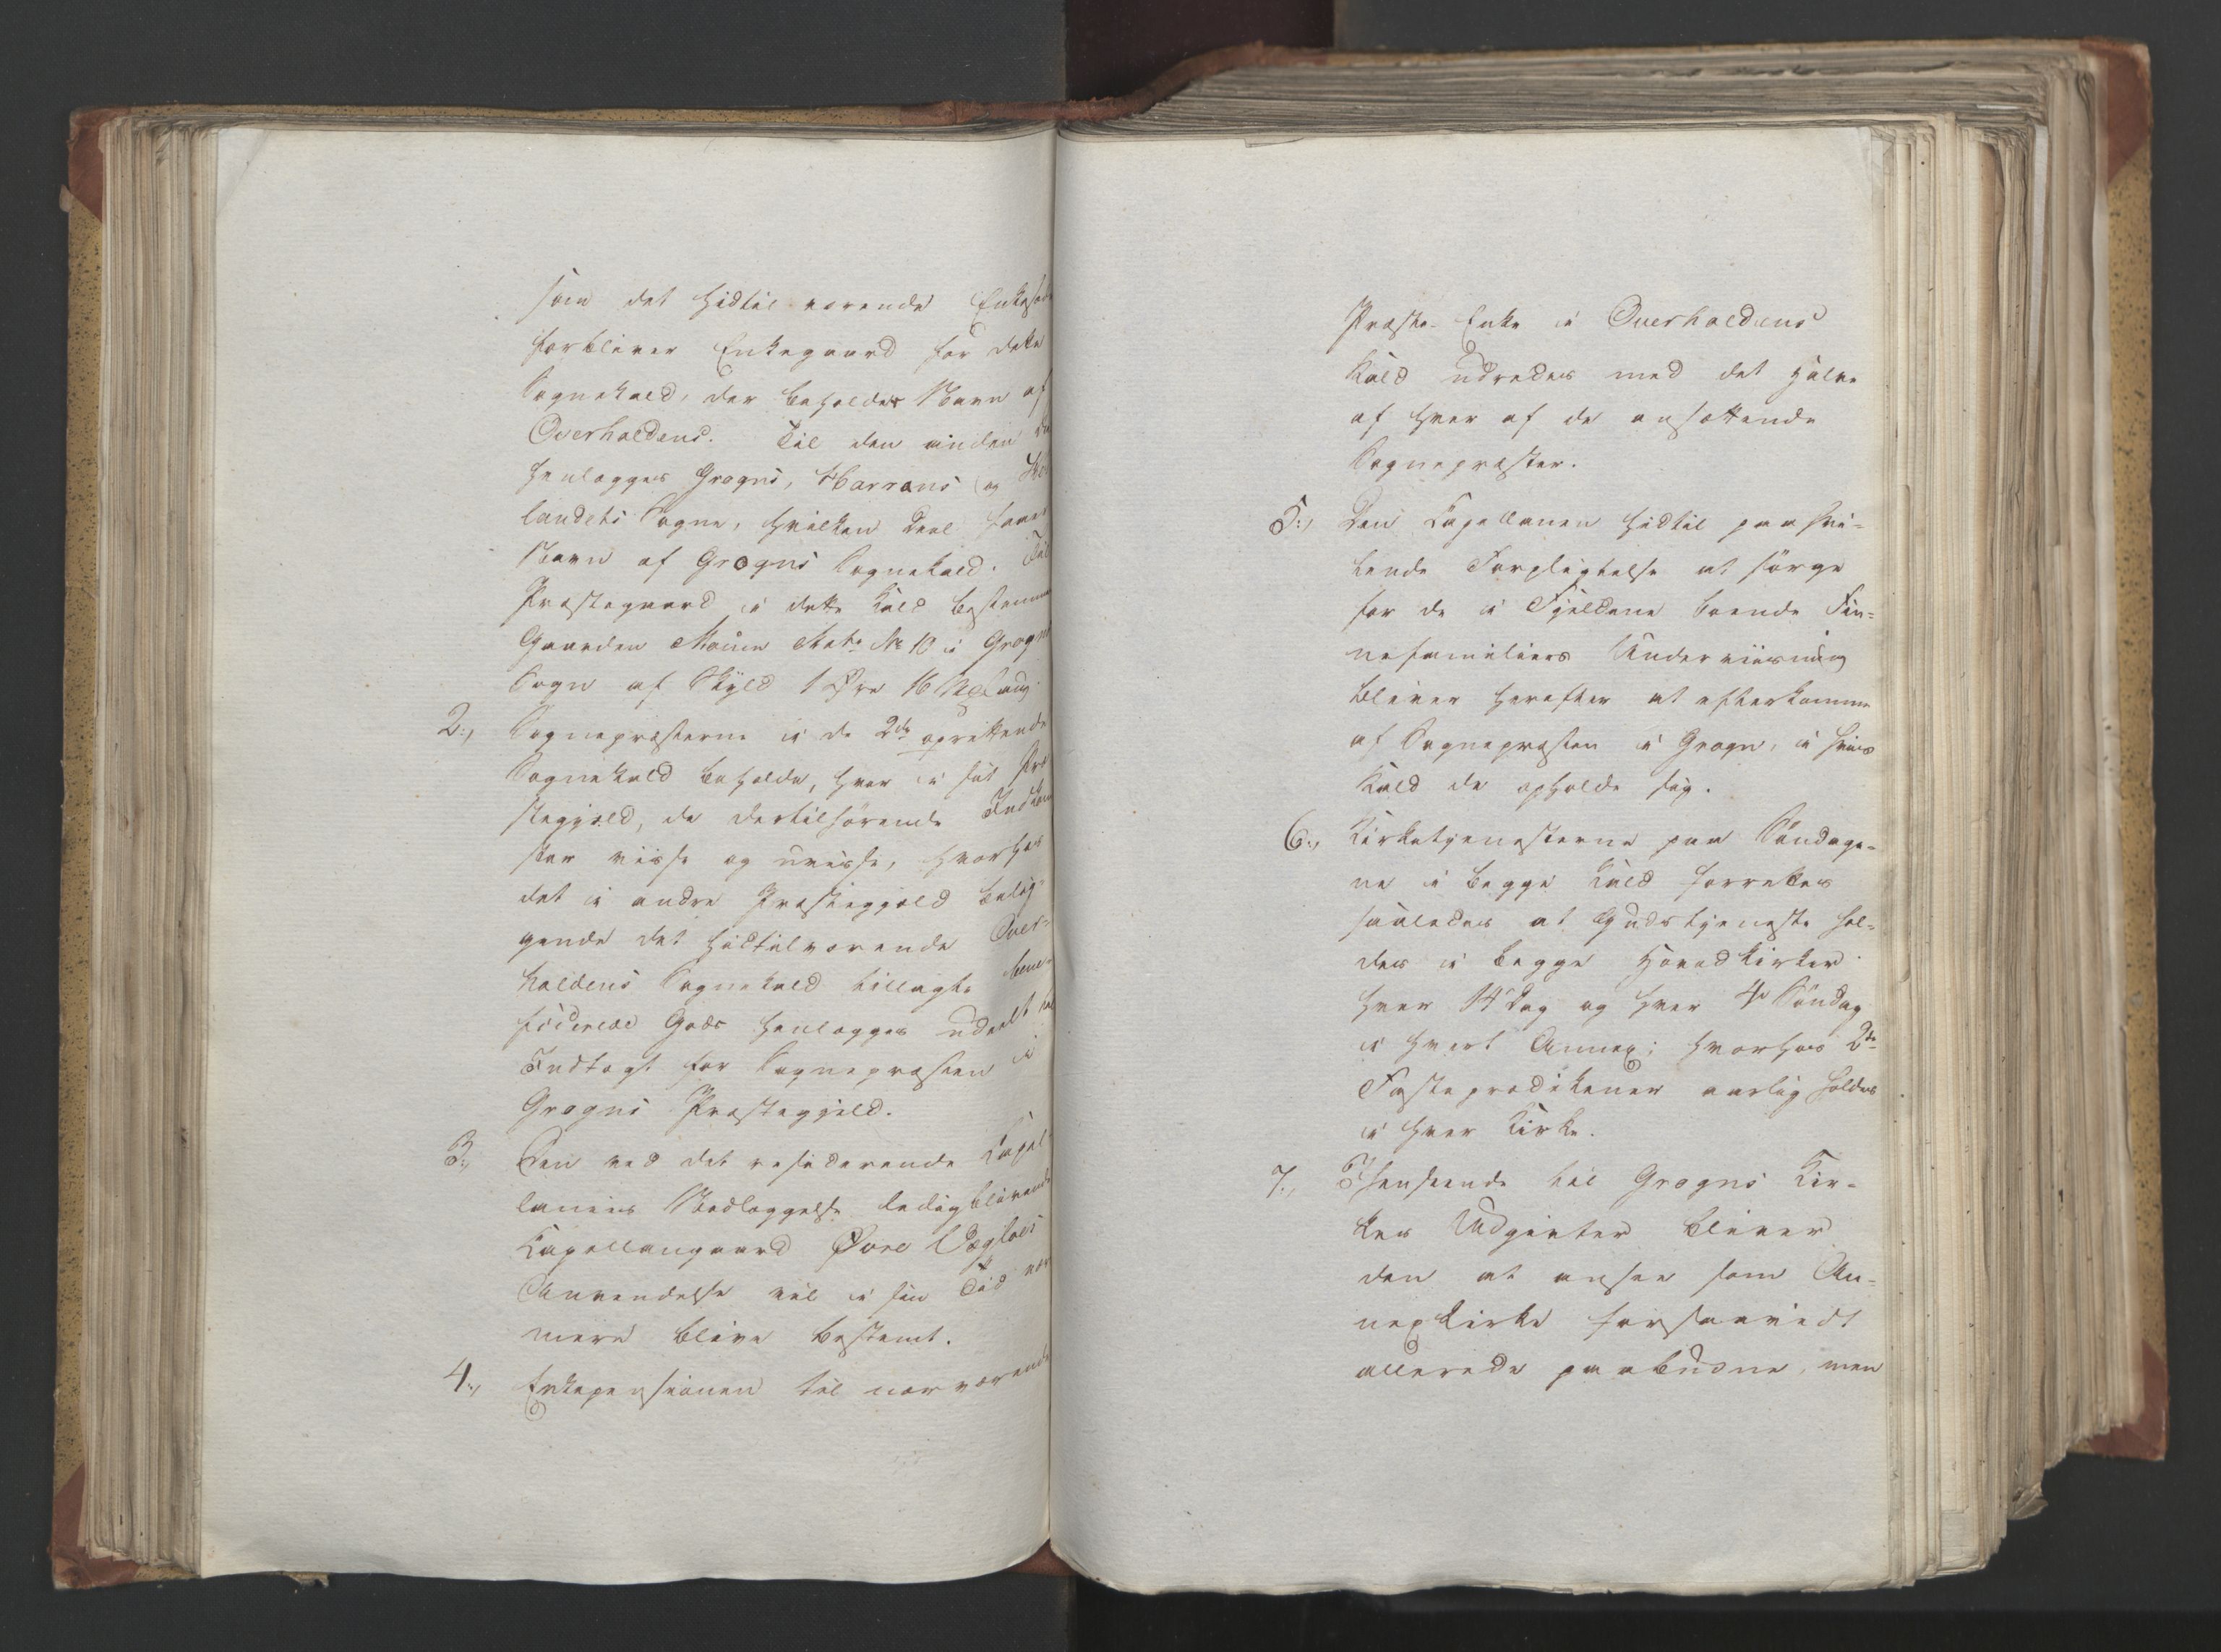 som det hidtil værende Enkesæde
forbliver Enkegaard for dette
Sognekald, der beholder Navn af
Overhaldens. Til den anden
henlægges Grogns, Harrans og
landets Sogne, hvilken Deel faaer
Navn af Grogns Sognekald. Til
Præstegaard i dette Kald bestemmes
Gaarden Moum Matr. No 10 i Grogns
Sogn af Skyld 1 Øre 16 Mkl.
2., Sognepræsterne i de 2de oprettende
Sognekald beholde, hver i sit Præ
stegjeld, de dertilhørende Indkom
ster visse og uvisse, hvorhos
det i andre Præstegjeld belig-
gende det hidtilværende Over-
haldens Sognekald tillagte bene-
ficerede Gods henlægges udeelt til
Indtægt for Sognepræsten i
Grogns Præstegjeld.
3., Den ved det residerende Capel-
lanies Nedlæggelse ledigblivende
Capellangaard Øvre
Anvendelse vil i sin Tid nær
mere blive bestemt.
4., Enkepensionen til nærværende
Præste-Enke i Overhaldens
Kald udredes med det halve
af hver af de ansættende
Sognepræster.
5., Den Capellanen hidtil paahvi-
lende Forpligtelse at sørge
for de i Fjeldene boende Fin-
nefamiliers Underviisning
bliver herefter at efterkomme
af Sognepræsten i Grogn, i hvis
Kald de opholde sig.
6., Kirketjenesterne paa Søndage-
ne i begge Kald forrettes
saaledes at Gudstjeneste hol-
des i begge Hovedkirker
hver 14 Dag og hver 4de Søndag
i hvert Annex; hvorhos 2de
Fasteprædikener aarlig holdes
i hver Kirke.
7., Henseende til Grogns Kir-
kes Udgivter bliver
den at ansee som An-
nexkirke forsaavidt
allerede paabudne, men